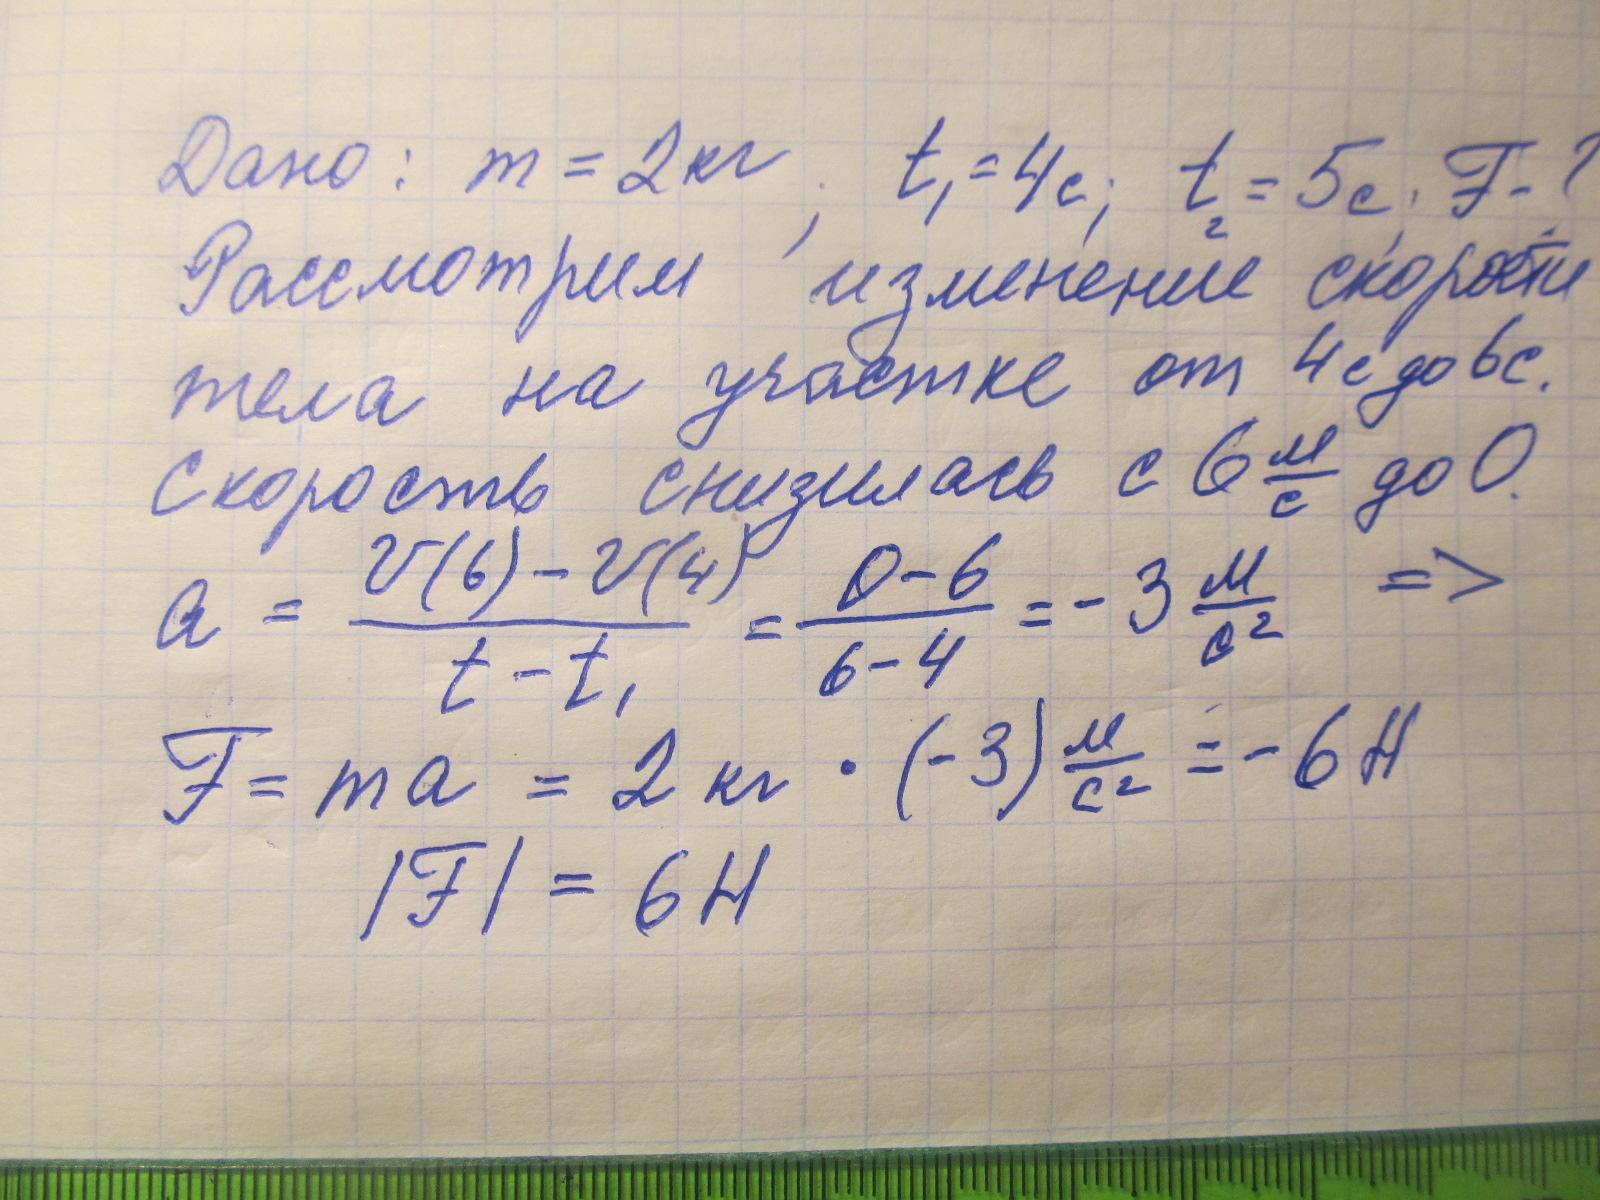 Дано: m = 2кг; t₁ = 4с; t₂ = 5с. F - ?
Рассмотрим изменение скорости
тела на участке от 4с до 6с.
Скорость снизилась с 6 м/с до 0.
a = (v(6) - v(4))/(t - t₁) = (0 - 6)/(6 - 4) = -3 м/с² =>
F = ma = 2 кг · (-3) м/с² = -6 Н
|F| = 6 Н